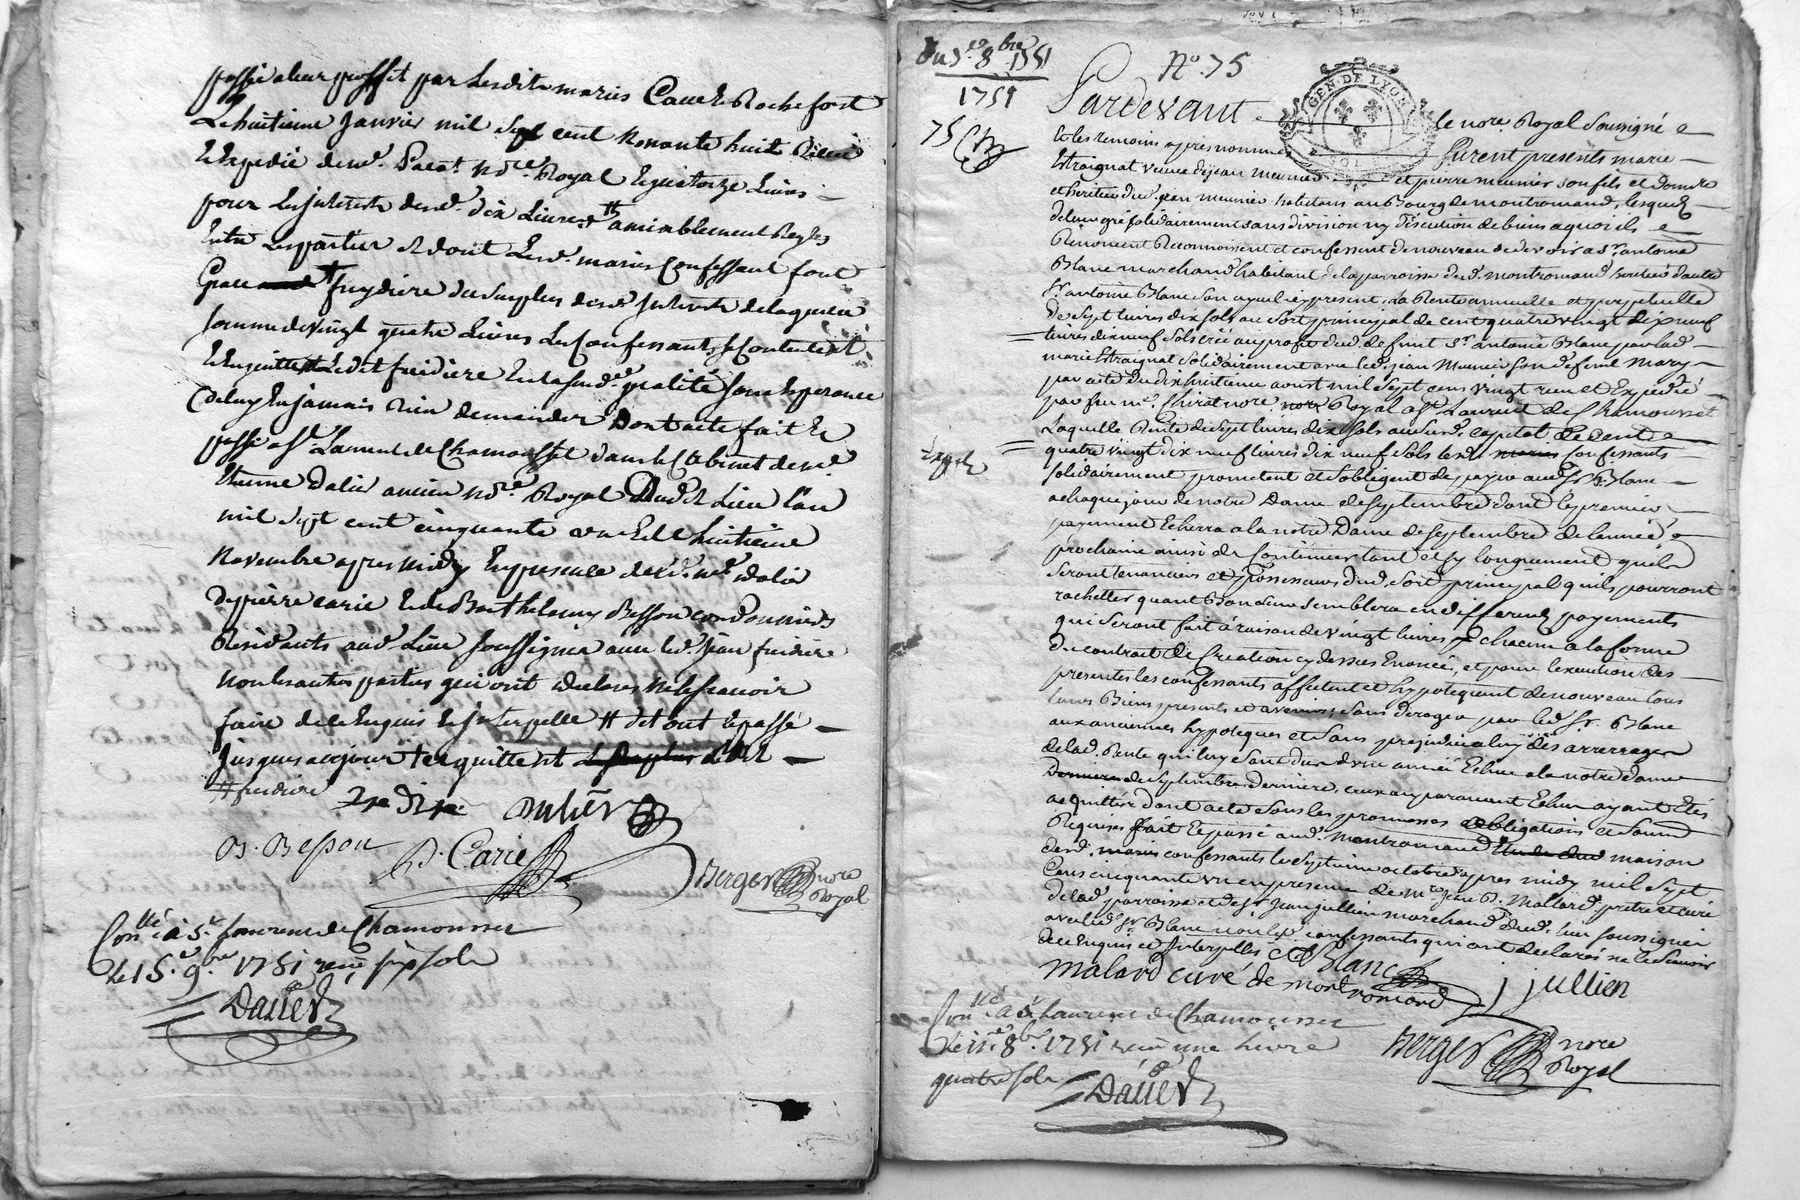 passé a leur proffit par lesdits maries Cave Rochefort
Le huitieme Janvier mil sept cent nonante huit
Expedié de me. nore Royal quatorze Livres
pour Les Interests desd. dix Livres amiablement Regles
Entre Les parties et dont Lesd. maries Confessent font
Grace fuydiere du surplus desd. Interests de laquelle
somme de vingt quatre Livres Les Confessants se Contentent
Enquittent Ledit fuidiere En lad. qualité sous Esperance
de luy En jamais Rien demander Dont acte fait Et
passé a St. Laurent de Chamousset dans le Cabinet de me.
Etienne dalier ancien nore Royal dud. Lieu L'an
mil sept cent cinquante un Et Le huitieme
Novembre apres midy En presence de me. dalier
de pierre carie Et de Barthelemy Besson cordonniers
Residants aud. Lieu soussignes avec led. Jean fuidiere
non les autres parties qui ont declares ne le scavoir
faire de ce Enquis Et Interpellé
jusques a ce jour Enquittent
# fuidiere
dalier
B. Besson P. Carie
Berger nore Royal
Conllé a St. Laurens de Chamousset
le 15e. 9bre 1751 reçu six sols
Daüet
Du 8bre 1751
1751
75
No. 75
GEN. DE LYON
Pardevant le nore. Royal soussigné
et les temoins apres nommes furent presents marie
Estraignat veuve de jean meunier et pierre meunier son fils et donatre
et heritier dud. jean meunier habitans au Bourg de montromand, lesquels
de leur gré solidairement sans division ny discution de biens a quoi ils
Renoncent Reconnoissent et confessent de nouveau de devoir a Sr. antoine
Blanc marchand habitant de la parroisse dud. montromand heritier d'autre
Sr. antoine Blanc son ayeul icy present, La Rente annuelle et perpetuelle
de sept livres dix sols au sort principal de cent quatre vingt dix neuf
livres dix neuf sols créé au profit dud. defunt Sr. antoine Blanc par lad.
marie Estraignat solidairement avec led. jean Meunier son d. feme Mary
par acte du dix huitieme aoust mil sept cens vingt Expedié
par feu me. Chirat nore. nore Royal a St. Laurent de Chamousset
Laquelle Rente de sept livres dix sols au sud. capital de cent
quatre vingt dix neuf livres dix neuf sols lesd. maries confessants
solidairement promettent et s'obligent de payer aud. Sr. Blanc
a chaque jour de notre Dame de septembre dont le premier
payement Echerra a la notre Dame de septembre de l'année
prochaine ainsi de continuer tant et sy longuement qu'ils
seront tenanciers et possesseurs dud. sort principal qu'ils pourront
rachetter quant Bon Leur semblera en differents payements
qui seront fait a raison de vingt livres chacun a la forme
du contrait de Creation cy dessus Enoncé, et pour l'exeution des
presentes les confessants affectent et hypotequent de nouveau tous
leurs Biens presents et avenirs, sans deroger par led. Sr. Blanc
aux anciennes hypoteques et sans prejudice a luy des arrerages
de lad. Rente qui luy sont dus d'une année Echue a la notre dame
Derniere de septembre derniere, ceux auparavant Echus ayant Etés
acquittés dont acte sous les promesses obligations et
Requises fait Et passé aud. Montromand maison
desd. maries confessants le septieme octobre apres midy mil sept
Cens cinquante un en presence de me. Mallard pretre et curé
de lad. parroisse et de Sr. Jean jullien marchand dud. lieu soussignes
avec led. Sr. Blanc confessants qui ont declarés ne le scavoir
de ce Enquis et Interpellés
Blanc
malard curé de montromand
j jullien
Berger nore Royal
Conllé a St. Laurens de Chamousset
le 11e. 8bre. 1751 reçu une livre
quatre sols
Daüet